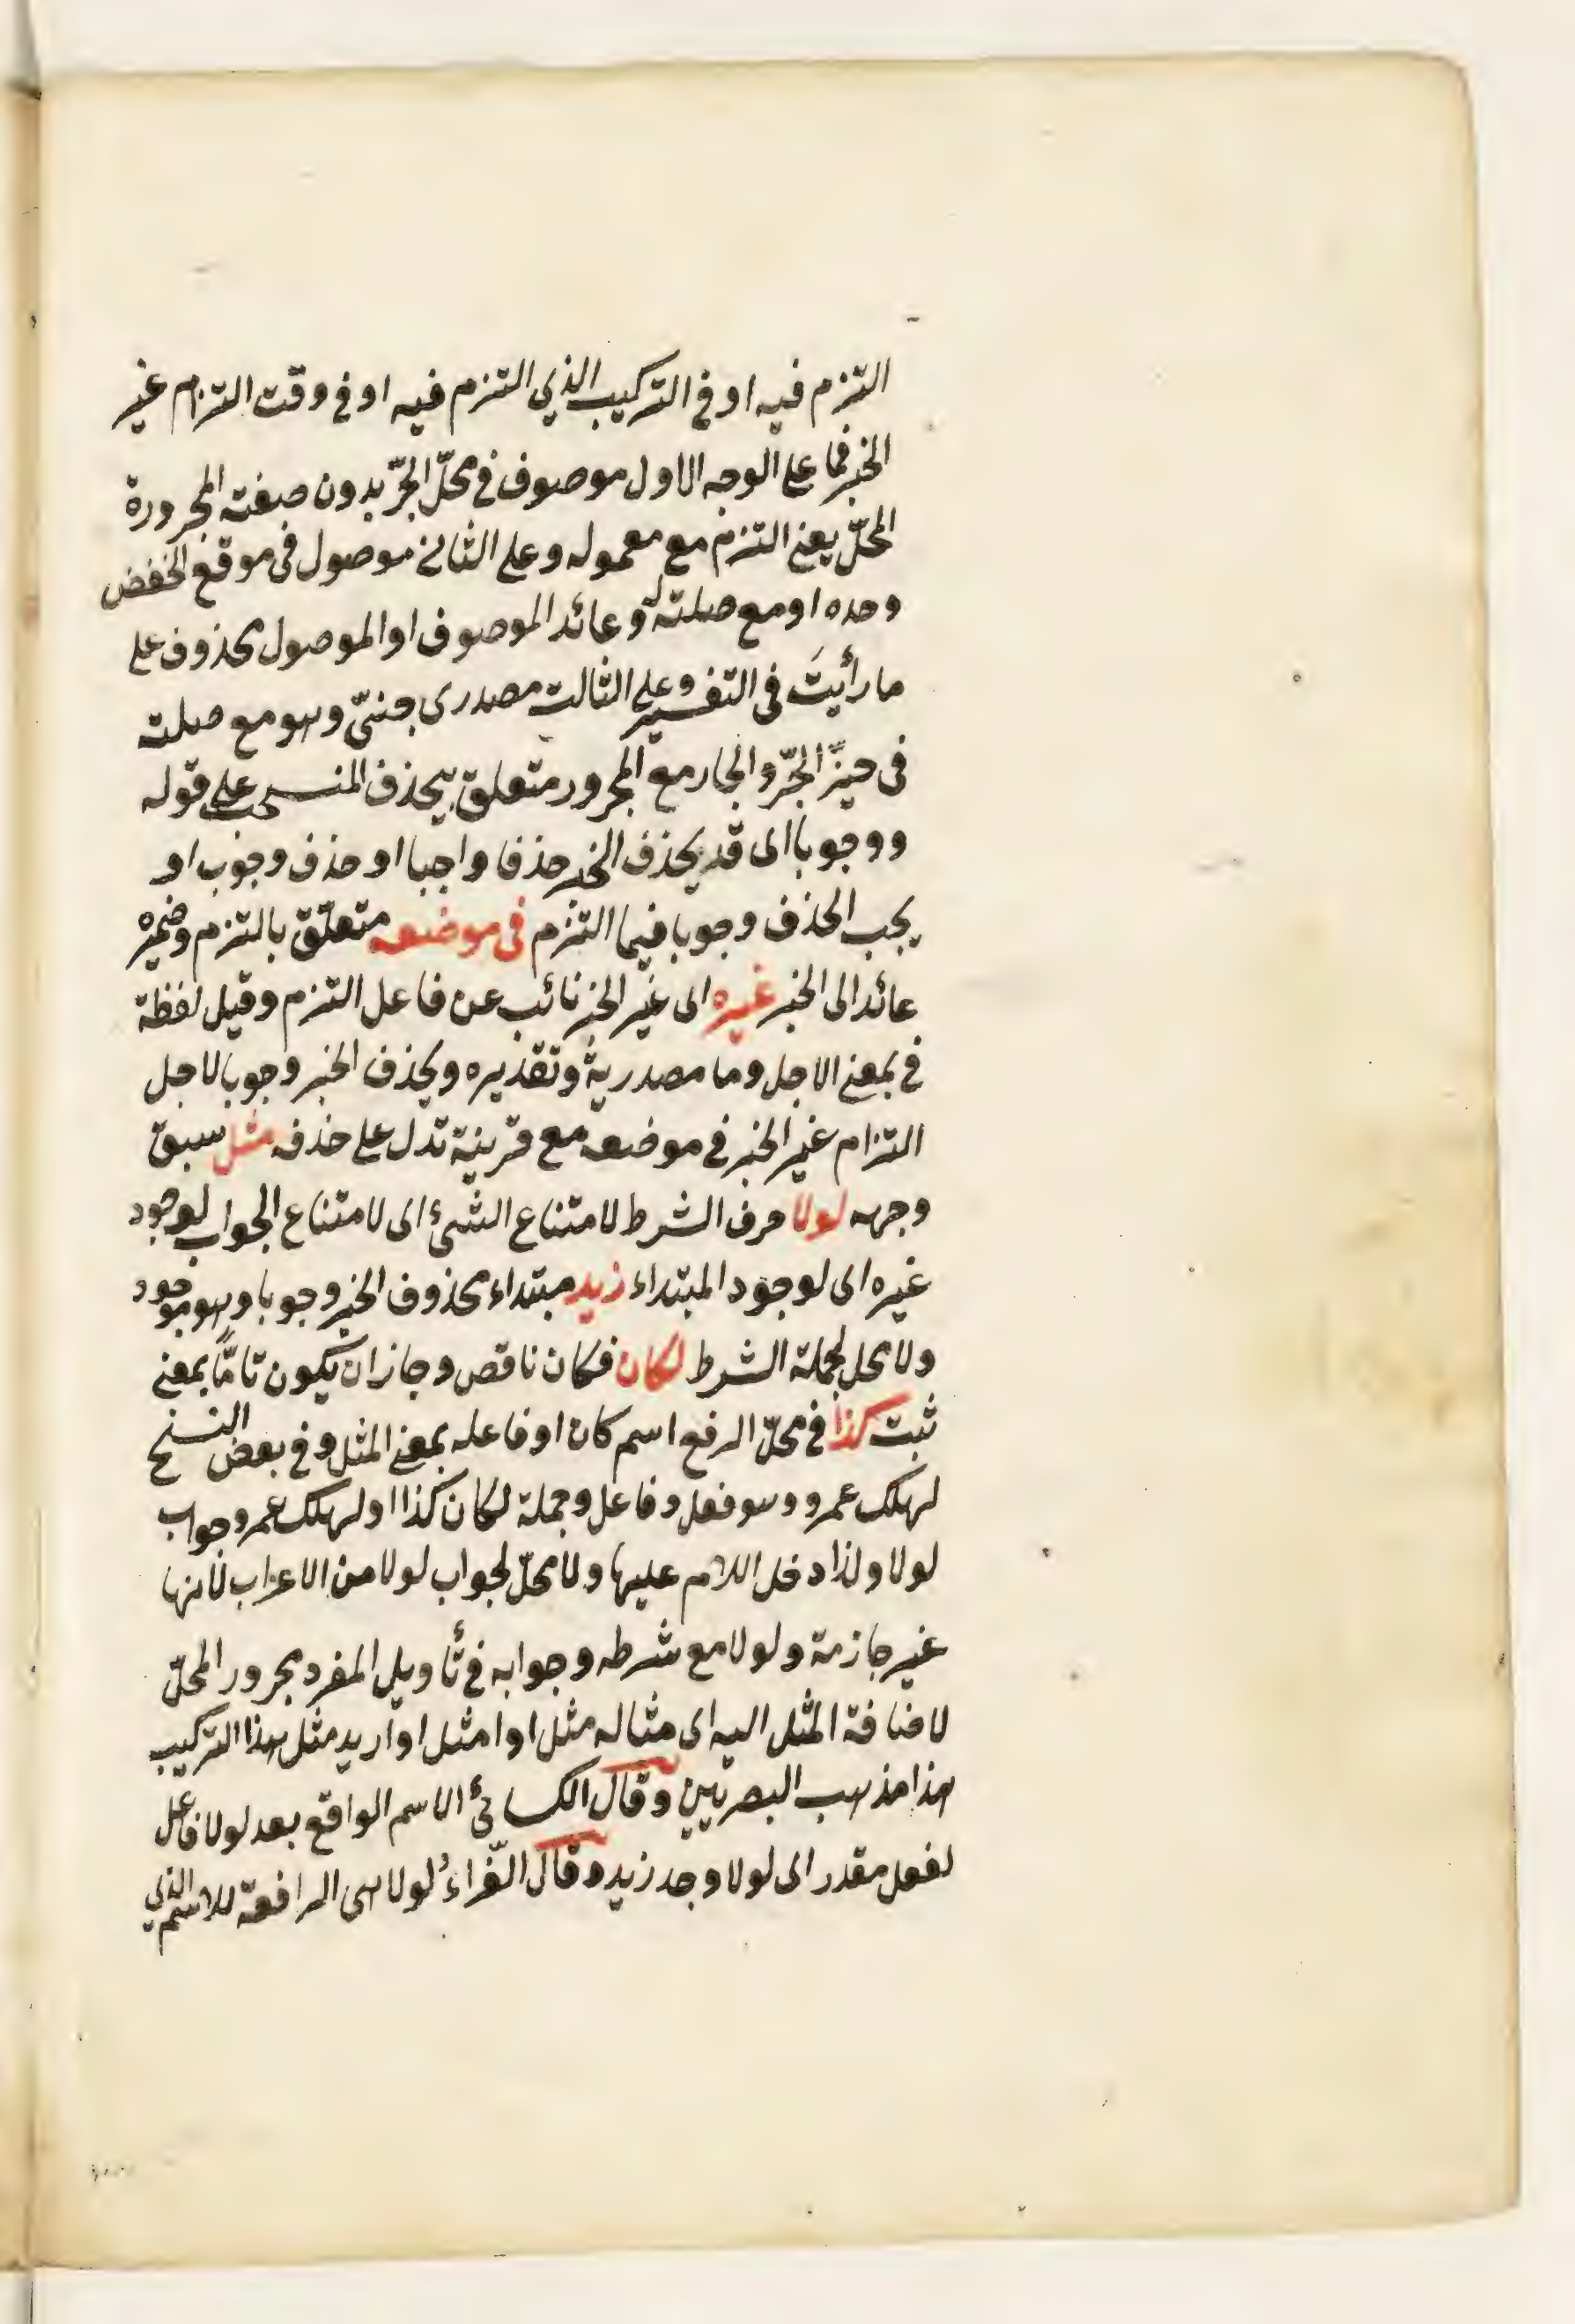 التزم فيه او في التركيب الذي التزم فيه او في وقت التزام غير
الخبر فما على الوجه الاول موصوف في محلّ الجرّ بدون صفته المجرورة
المحلّ يعني التزم مع معموله وعلى الثاني موصول في موقع الخفض
وحده او مع صلته و عائد الموصوف او الموصول محذوف على
ما رأيتَ في التفسير وعلى الثالث مصدرى جنىّ وهو مع صلته
في حيّز الجرّ والجار مع المجرور متعلق بيحذف المنسحب على قوله
ووجوبا اى قد يحذف الخبر حذفا واجبا او حذف وجوب او
يجب الحذف وجوبا فيما التزم في موضعه متعلّق بالتزم وضميره
عائد الى الخبر غيره اى غير الخبر نائب عن فاعل التزم وقيل لفظة
في بمعنى الاجل وما مصدرية وتقديره ويحذف الخبر وجوبا لاجل
التزام غير الخبر في موضعه مع قرينة تدل على حذفه مثل سبق
وجهه لولا حرف الشرط لامتناع الشئ اى لامتناع الجواب لوجود
غيره اى لوجود المبتداء زيد مبتداء محذوف الخبر وجوبا وهو موجود
ولا محل لجملة الشرط لكان فكان ناقص وجاز ان يكون تامًّا بمعنى
ثبت كذا في محلّ الرفع اسم كان او فاعله بمعنى المثل وفي بعض النسخ
لهلك عمرو وهو فعل وفاعل وجملة لكان كذا او لهلك عمرو جواب
لولا ولذا دخل اللام عليها ولا محلّ لجواب لولا من الاعراب لانها
غير جازمة ولولا مع شرطه وجوابه في تأويل المفرد مجرور المحلّ
لاضافة المثل اليه اى مثاله مثل او امثل او اريد مثل هذا التركيب
هذا مذهب البصريّين وقال الكسائيّ الاسم الواقع بعد لولا فاعل
لفعل مقدر اى لولا وجد زيد وقال الفّراء لولا هي الرافعة للاسم الذي